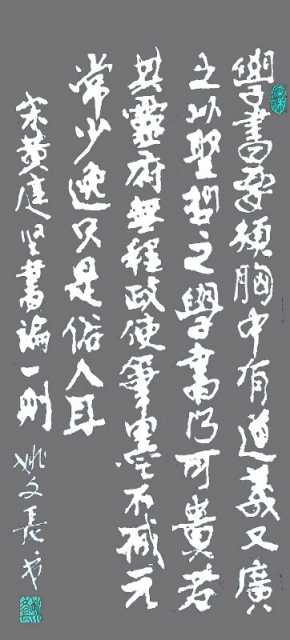 學書要須胸中有道義又廣
之以聖哲之學書乃可貴若
其靈府無程政使筆墨不减元
常少逸只是俗人耳
宋黄庭坚書論一則
姚文長书